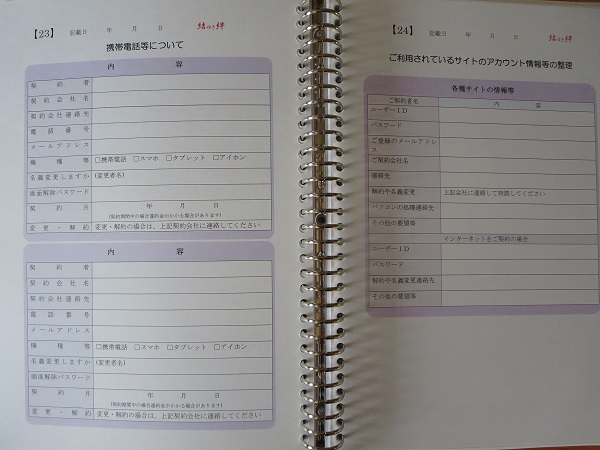 【23】 記載日 年 月 日 結ゆき絆
携帯電話等について
内 容
契約者
契約会社名
契約会社連絡先
電話番号
メールアドレス
機種等 □携帯電話 □スマホ □タブレット □アイホン
名義変更しますか (変更者名)
画面解除パスワード
契約日 年 月 日
(契約期間中の場合違約金がかかる場合があります)
変更・解約 変更・解約の場合は、上記契約会社に連絡してください
内 容
契約者
契約会社名
契約会社連絡先
電話番号
メールアドレス
機種等 □携帯電話 □スマホ □タブレット □アイホン
名義変更しますか (変更者名)
画面解除パスワード
契約月 年 月 日
(契約期間中の場合違約金がかかる場合があります)
変更・解約 変更・解約の場合は、上記契約会社に連絡してください
【24】 記載日 年 月 日 結ゆき絆
ご利用されているサイトのアカウント情報等の整理
各種サイトの情報等
ご契約者名 内 容
ユーザーID
パスワード
ご登録のメールアドレス
ご契約会社名
連絡先
解約や名義変更 上記会社に連絡して相談してください
パソコンの処理連絡先
その他の要望等
インターネットをご契約の場合
ユーザーID
パスワード
解約や名義変更連絡先
その他の要望等